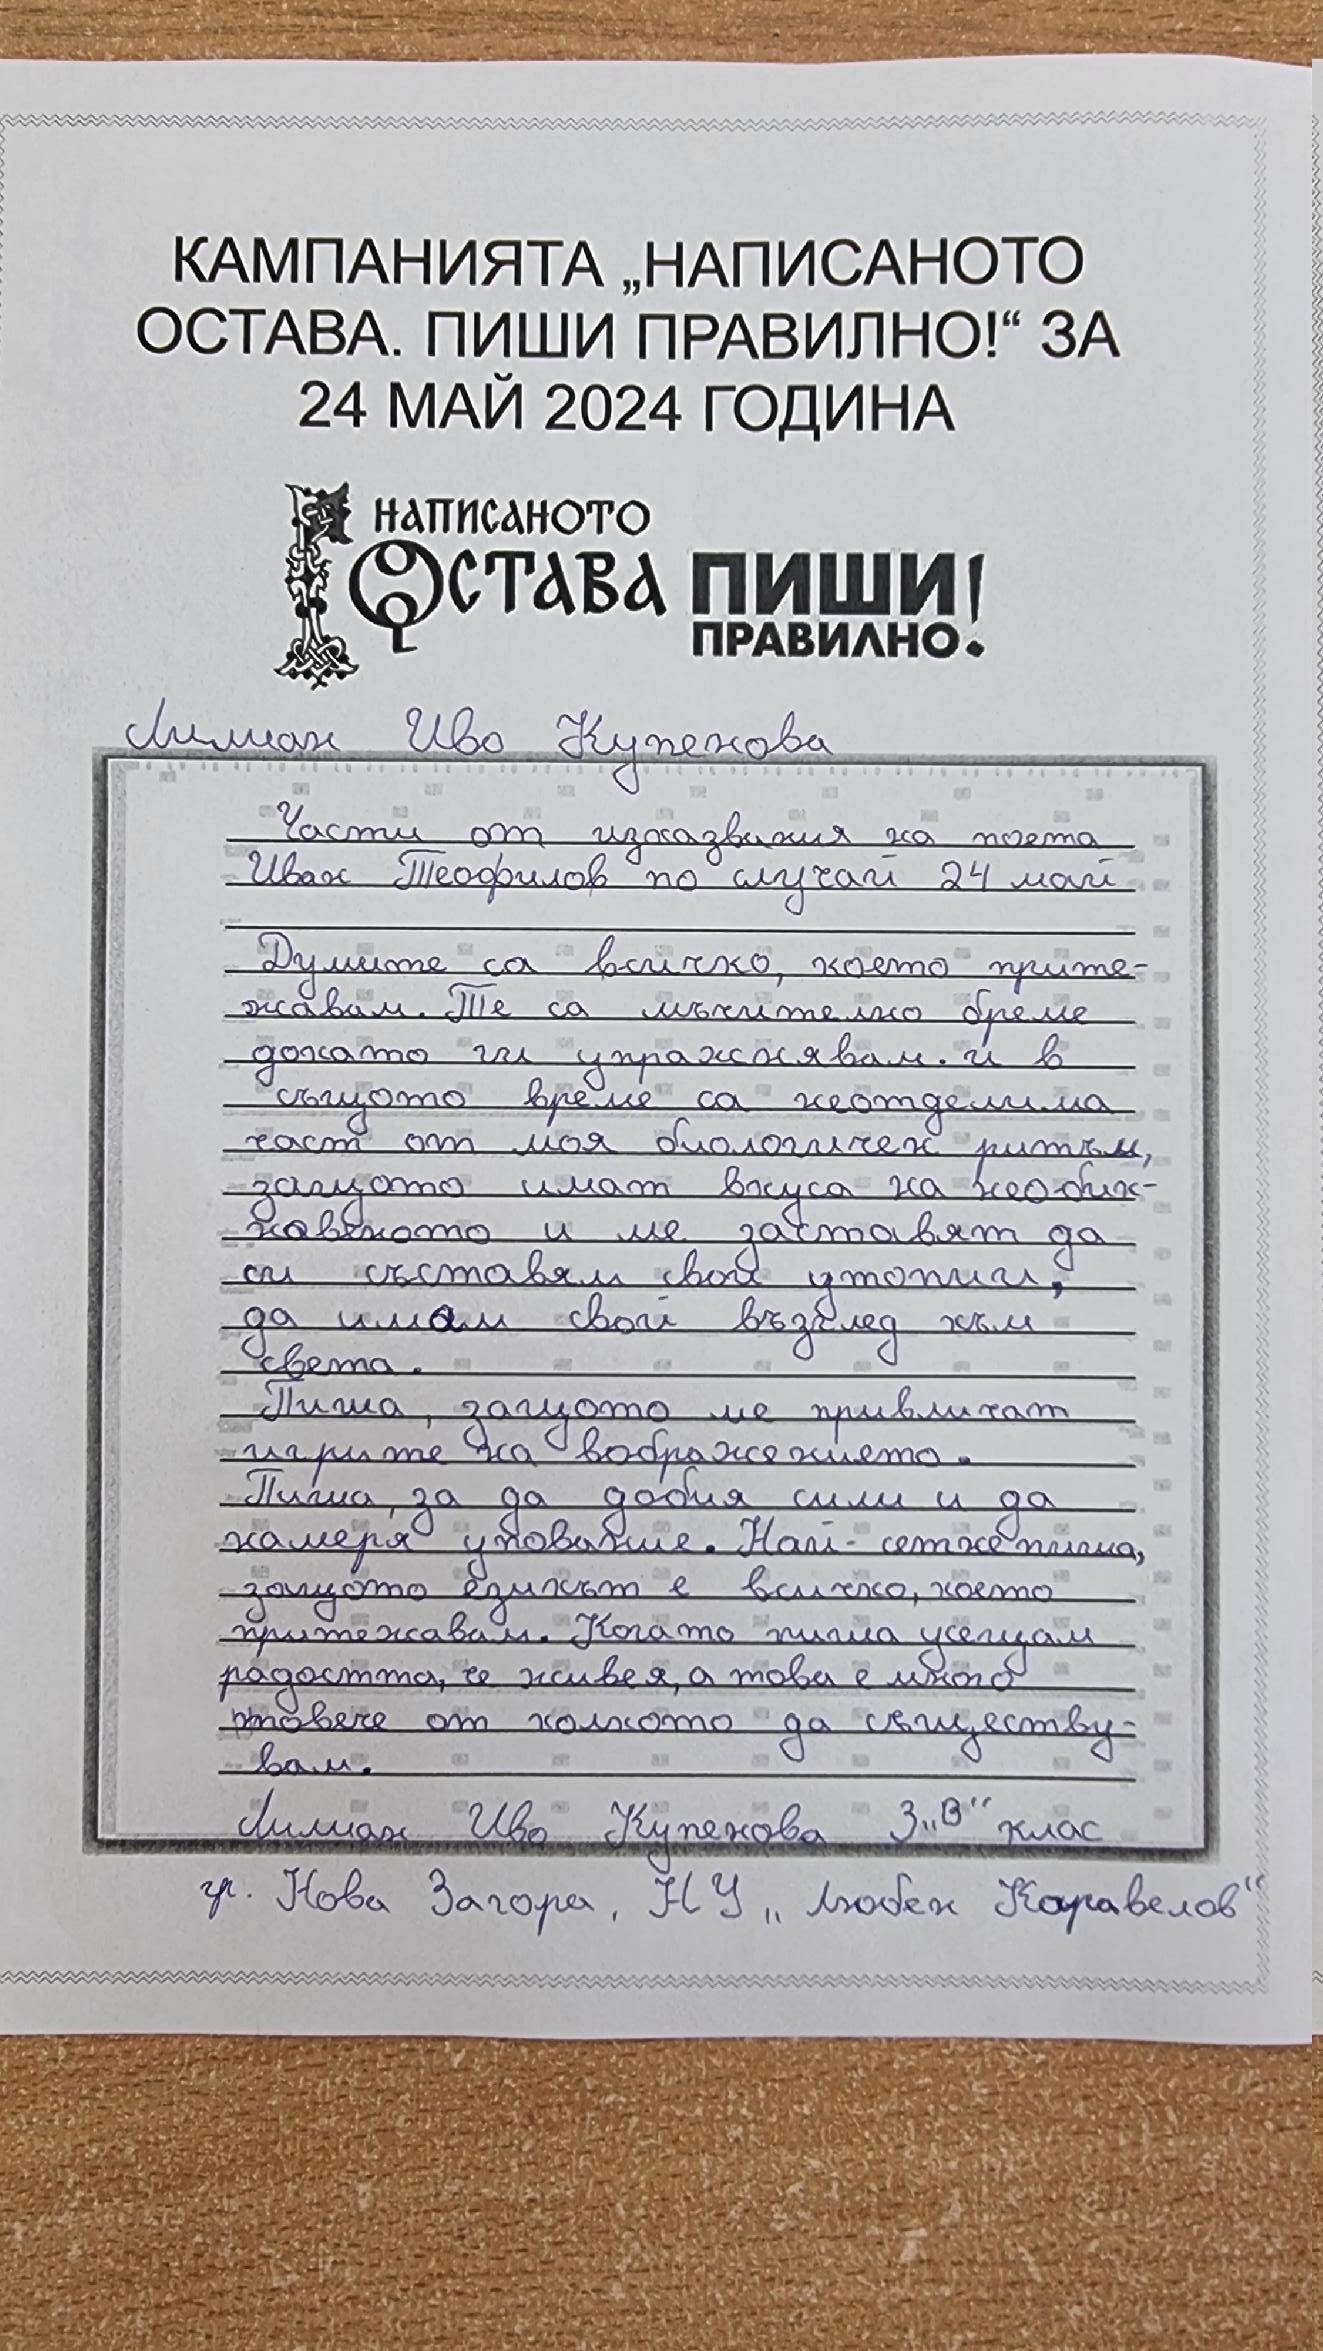 КАМПАНИЯТА „НАПИСАНОТО
ОСТАВА. ПИШИ ПРАВИЛНО!“ ЗА
24 МАЙ 2024 ГОДИНА
НАПИСАНОТО
ОСТАВА ПИШИ
ПРАВИЛНО!
Лилиан Иво Купенова
Части от изказвания на поета
Иван Теофилов по случай 24 май
Думите са всичко, което прите-
жавам. Те са мъчително бреме
докато ги упражнявам. и в
същото време са неотделима
част от моя биологичен ритъм,
защото имат вкуса на необик-
новеното и ме заставят да
си съставям свои утопии,
да имам свой възглед към
света.
Пиша, защото ме привличат
игрите на вображението.
Пиша, за да добия сили и да
намеря упование. Най-сетне пиша,
защото езикът е всичко, което
притежавам. Когато пиша усещам
радостта, че живея, а това е много
повече от колкото да съществу-
вам.
Лилиан Иво Купенова 3„В“ клас
гр. Нова Загора, НУ „Любен Каравелов“